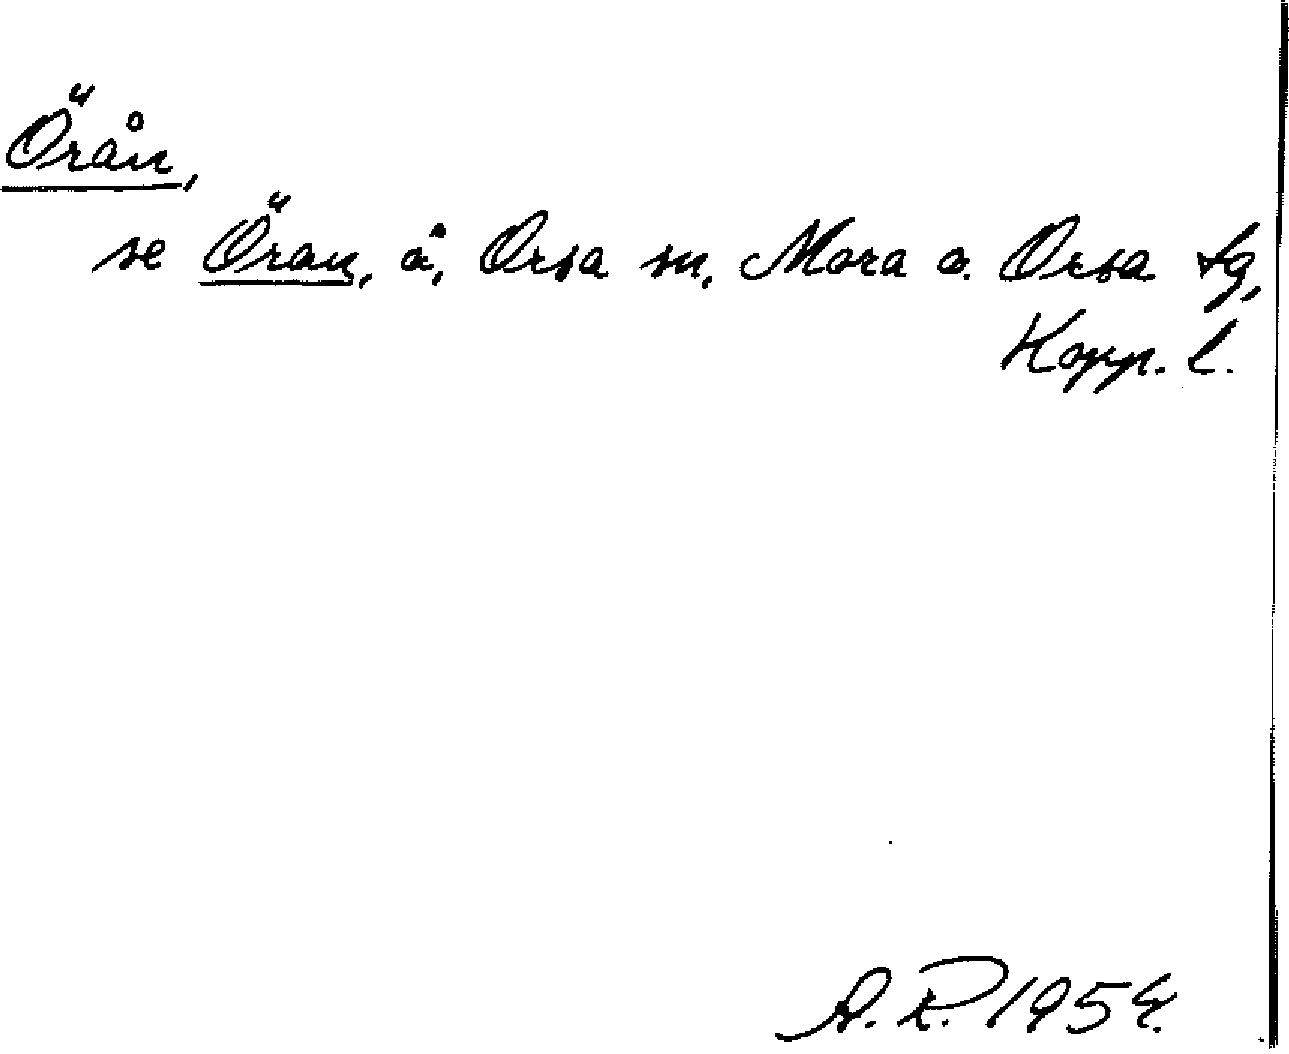 Örån,
se Öran, å, Orsa sn, Mora o. Orsa tg,
Kopp. l.
A. R. 1954.